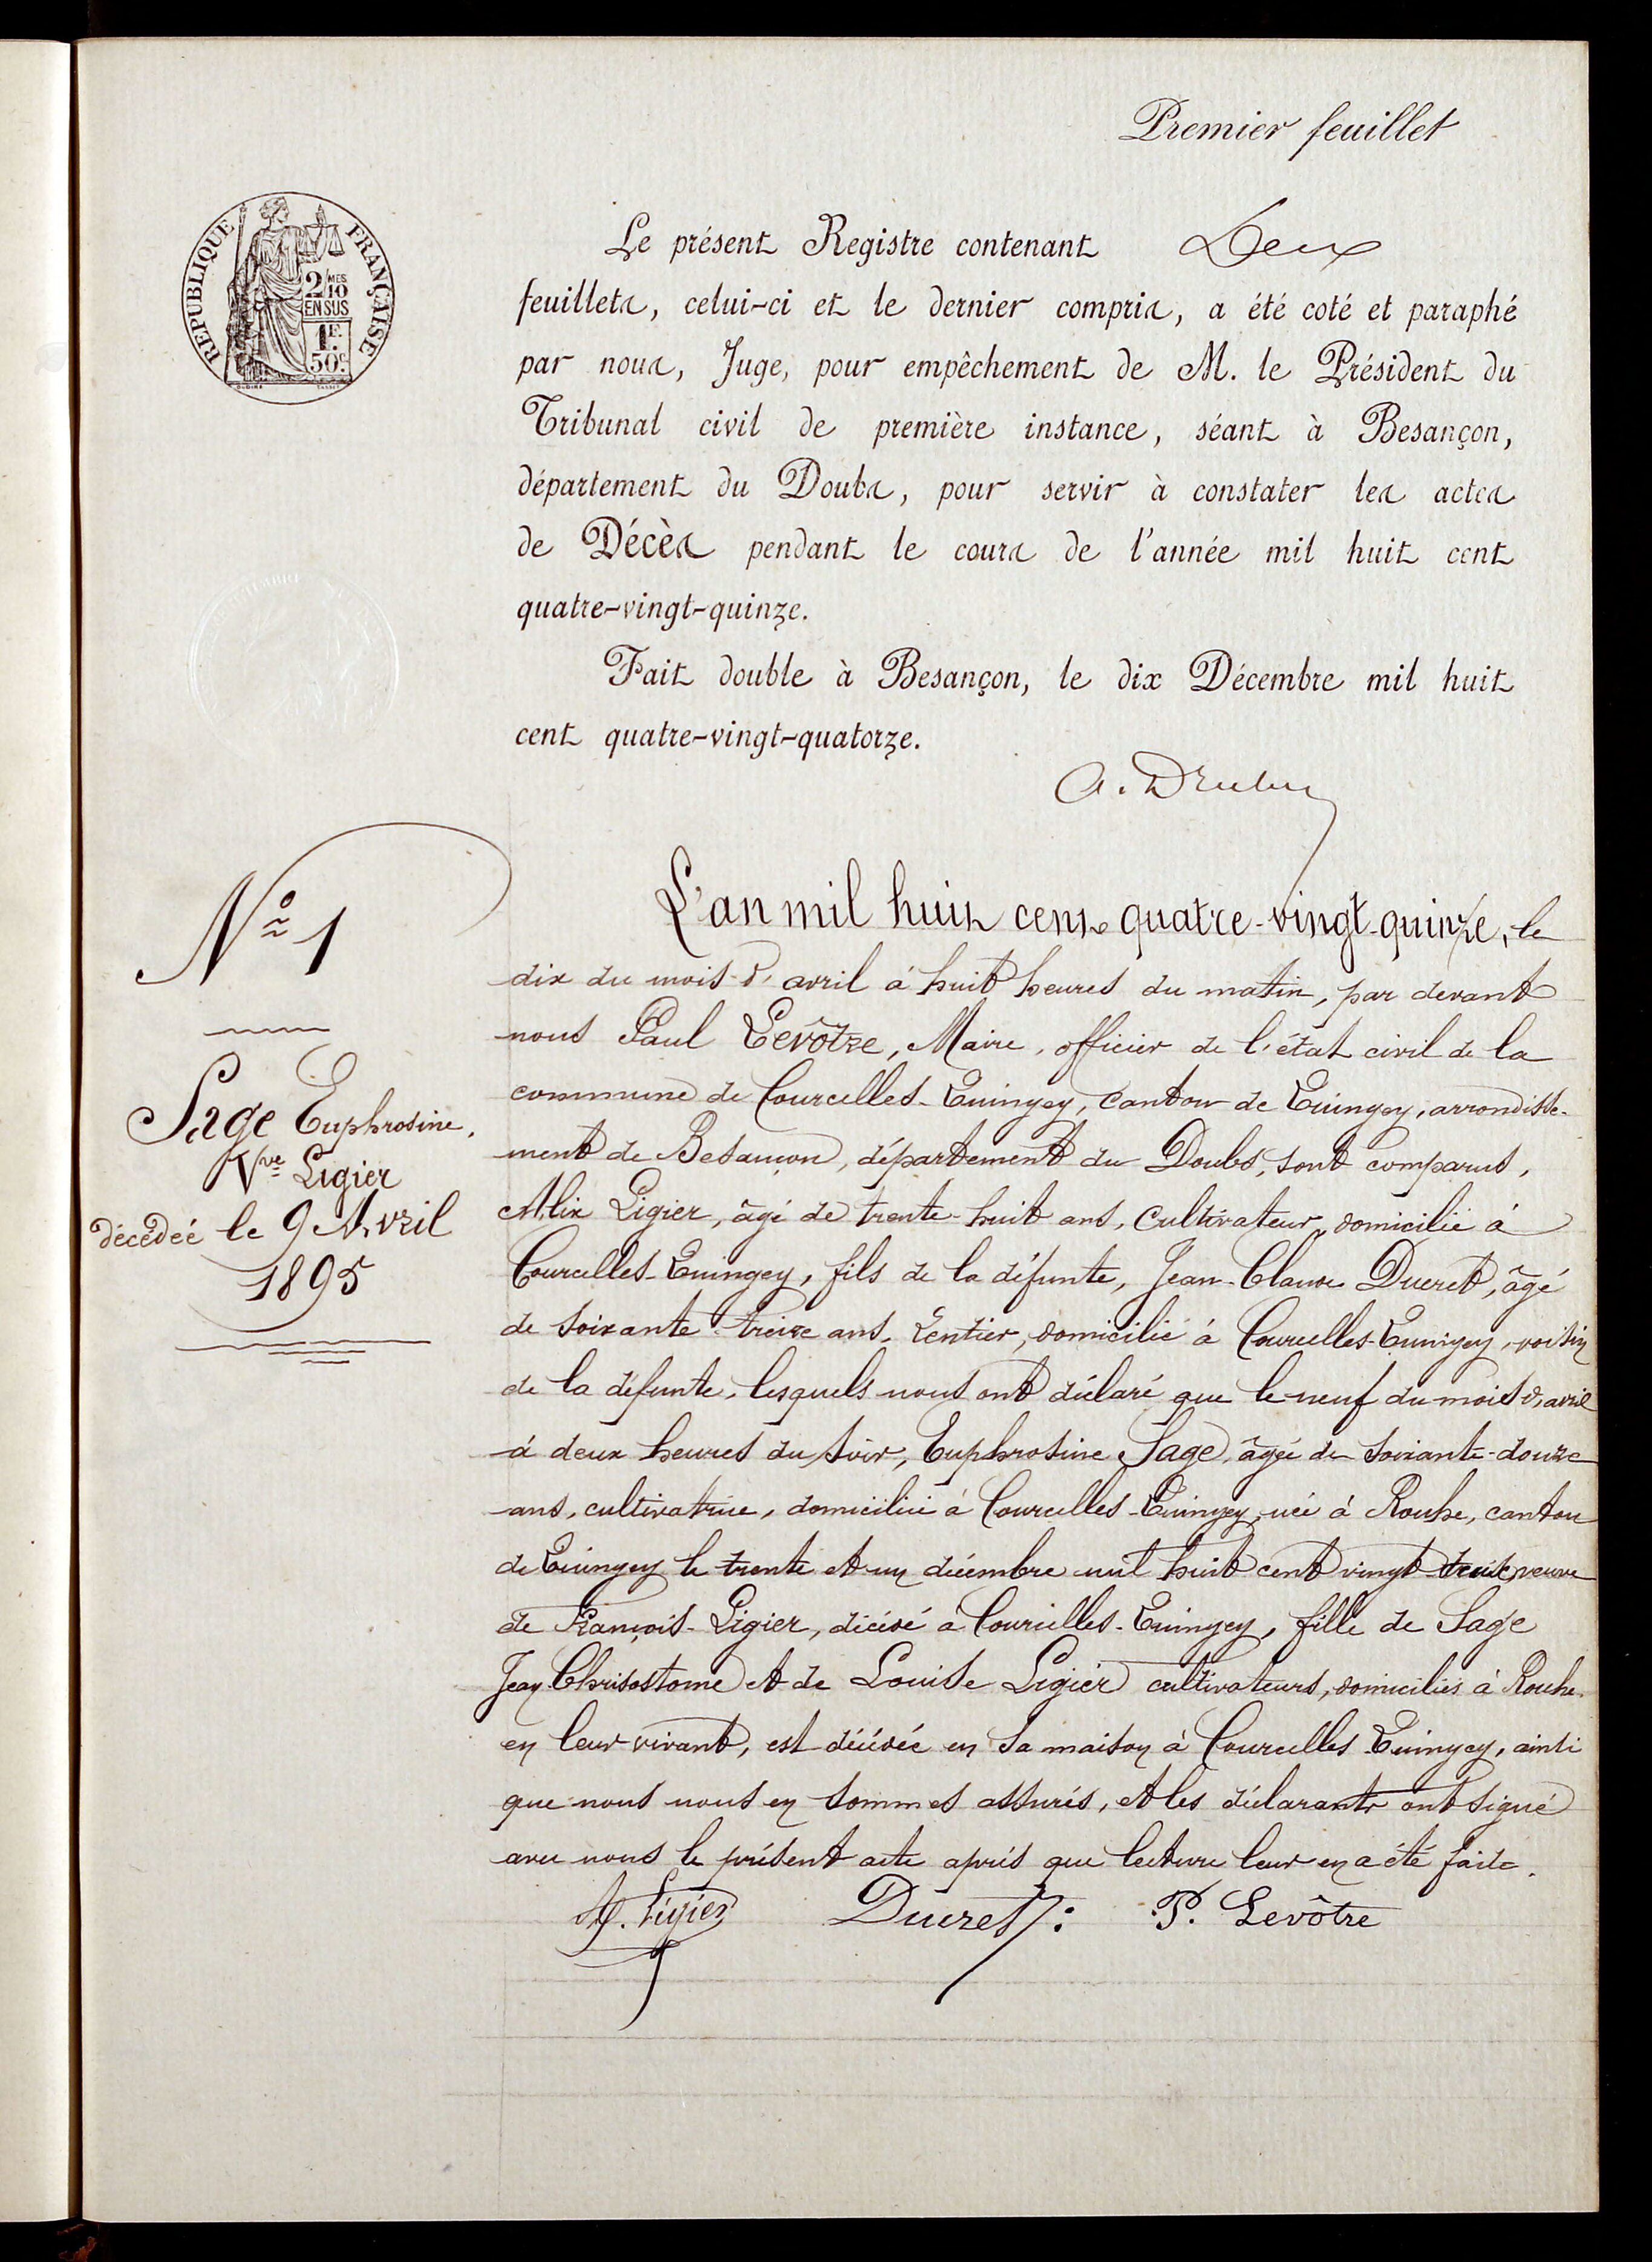 Premier feuillet
REPUBLIQUE FRANÇAISE
2/10 MES
EN SUS
1F.
50c.
Le présent Registre contenant Deux
feuillets, celui-ci et le dernier compris, a été coté et paraphé
par nous, Juge, pour empêchement de M. le Président du
Tribunal civil de première instance, séant à Besançon,
département du Doubs, pour servir à constater les actes
de Décès pendant le cours de l'année mil huit cent
quatre-vingt-quinze.
Fait double à Besançon, le dix Décembre mil huit
cent quatre-vingt-quatorze.
No 1
Sage Euphrosine.
Vve Ligier
décédée le 9 Avril
1895
L'an mil huit cent quatre-vingt-quinze, le
dix du mois d'avril à huit heures du matin, par devant
nous Paul Levôtre, Maire, officier de l'état civil de la
commune de Courcelles-Quingey, canton de Quingey, arrondisse-
ment de Besançon, département du Doubs, sont comparus,
Alix Ligier, âgé de trente-huit ans, Cultivateur, domicilié à
Courcelles-Quingey, fils de la défunte, Jean-Claude Ducret, âgé
de soixante-treize ans, Rentier, domicilié à Courcelles-Quingey, voisin
de la défunte, lesquels nous ont déclaré que le neuf du mois d'avril
à deux heures du soir, Euphrosine Sage, âgée de soixante-douze
ans, cultivatrice, domiciliée à Courcelles-Quingey, née à Rouhe, canton
de Quingey le trente et un décembre mil huit cent vingt veuve
de François-Ligier, décédé à Courcelles-Quingey, fille de Sage
Jean Chrisostome et de Louise Ligier cultivateurs, domiciliés à Rouhe.
en leur vivant, est décédée en sa maison à Courcelles-Quingey, ainsi
que nous nous en sommes assurés, et les déclarants ont signé
avec nous le présent acte après que lecture leur en a été faite.
A. Ligier Ducret P. Levôtre